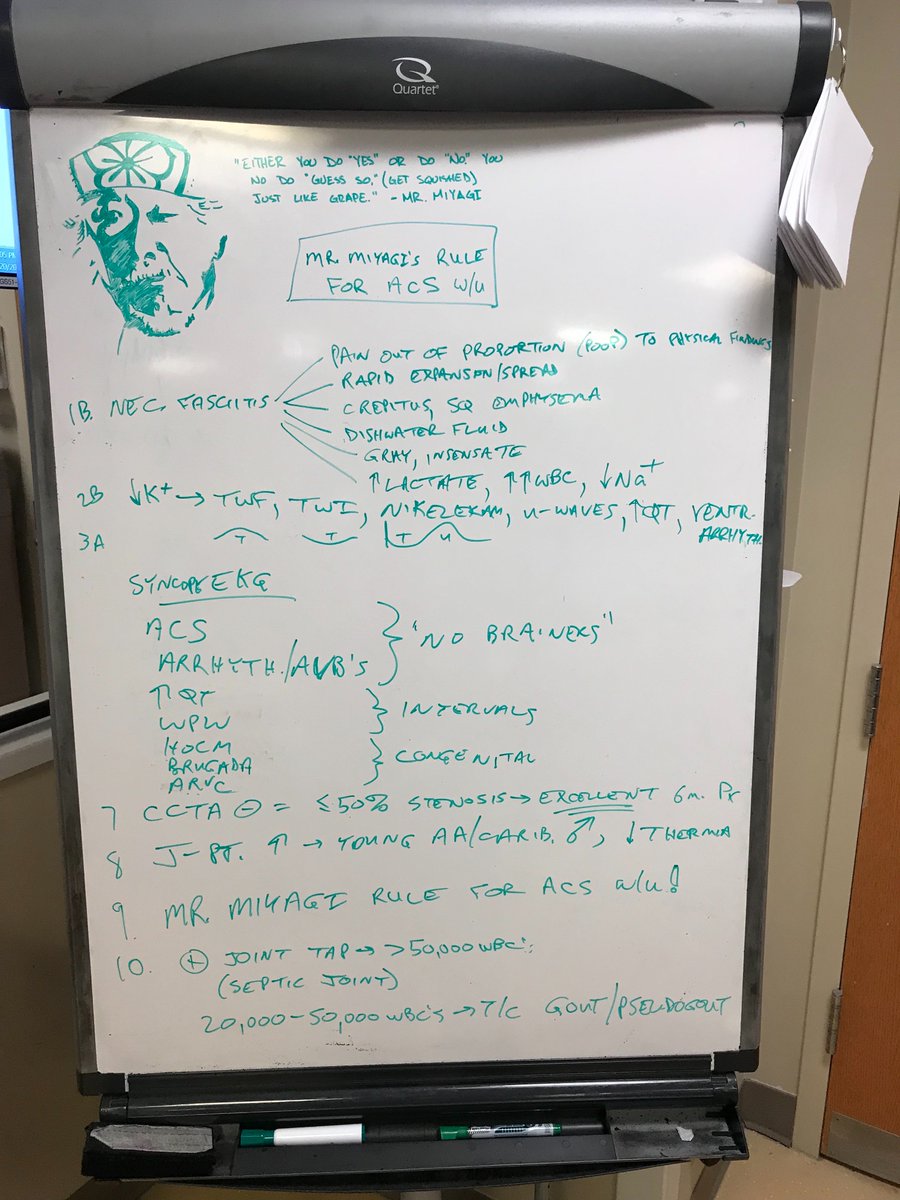 Quartet
"EITHER YOU DO "YES" OR DO "NO." YOU
NO DO "GUESS SO," (GET SQUISHED)
JUST LIKE GRAPE." - MR. MIYAGI
MR. MIYAGI'S RULE
FOR ACS W/U
PAIN OUT OF PROPORTION (POOP) TO PHYSICAL FINDINGS
RAPID EXPANSION/SPREAD
1B. NEC. FASCIITIS
CREPITUS, SQ EMPHYSEMA
DISHWATER FLUID
GRAY, INSENSATE
↑LACTATE, ↑↑WBC, ↓Na+
2B ↓K+ → TWF, TWI, NIKE EKG, U-WAVES, ↑QT, VENTR.
ARRHYTH.
3A
T T T U
SYNCOPE EKG
ACS
"NO BRAINERS"
ARRHYTH./AVB'S
↑QT
INTERVALS
WPW
HOCM
BRUGADA
CONGENITAL
ARVC
7 CCTA ⊖ = ≤50% STENOSIS → EXCELLENT 6m. Px
8 J-PT. ↑ → YOUNG AA/CARIB. ♂, ↓THERMIA
9. MR. MIYAGI RULE FOR ACS W/U!
10. ⊕ JOINT TAP → >50,000 WBC's
(SEPTIC JOINT)
20,000-50,000 WBC'S → T/C GOUT/PSEUDOGOUT